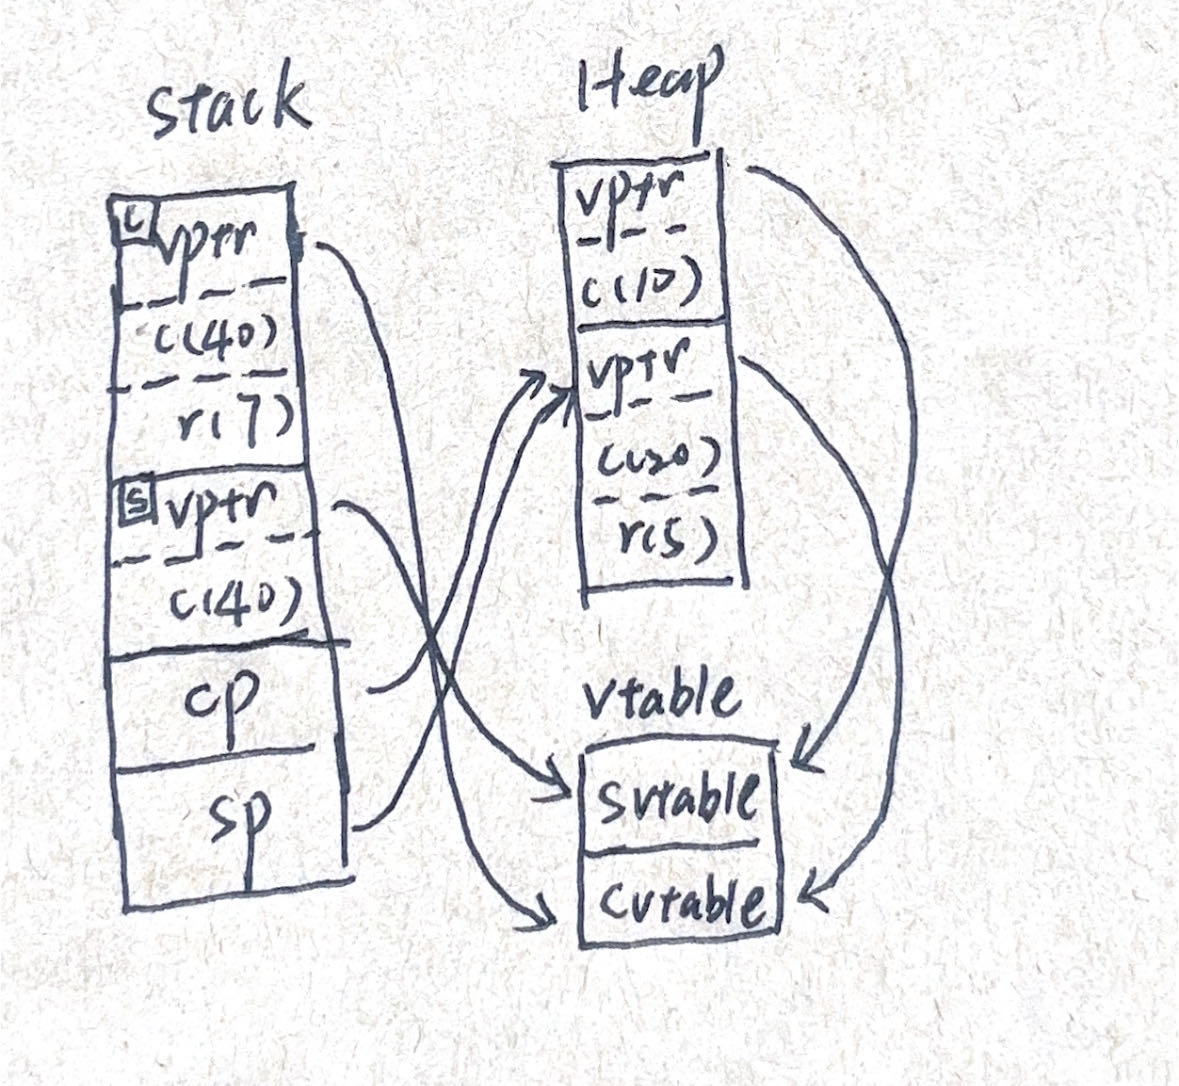 stack
C
vptr
c(40)
r(7)
S
vptr
c(40)
cp
sp
Heap
vptr
c(10)
vptr
c(20)
r(5)
vtable
Svtable
Cvtable